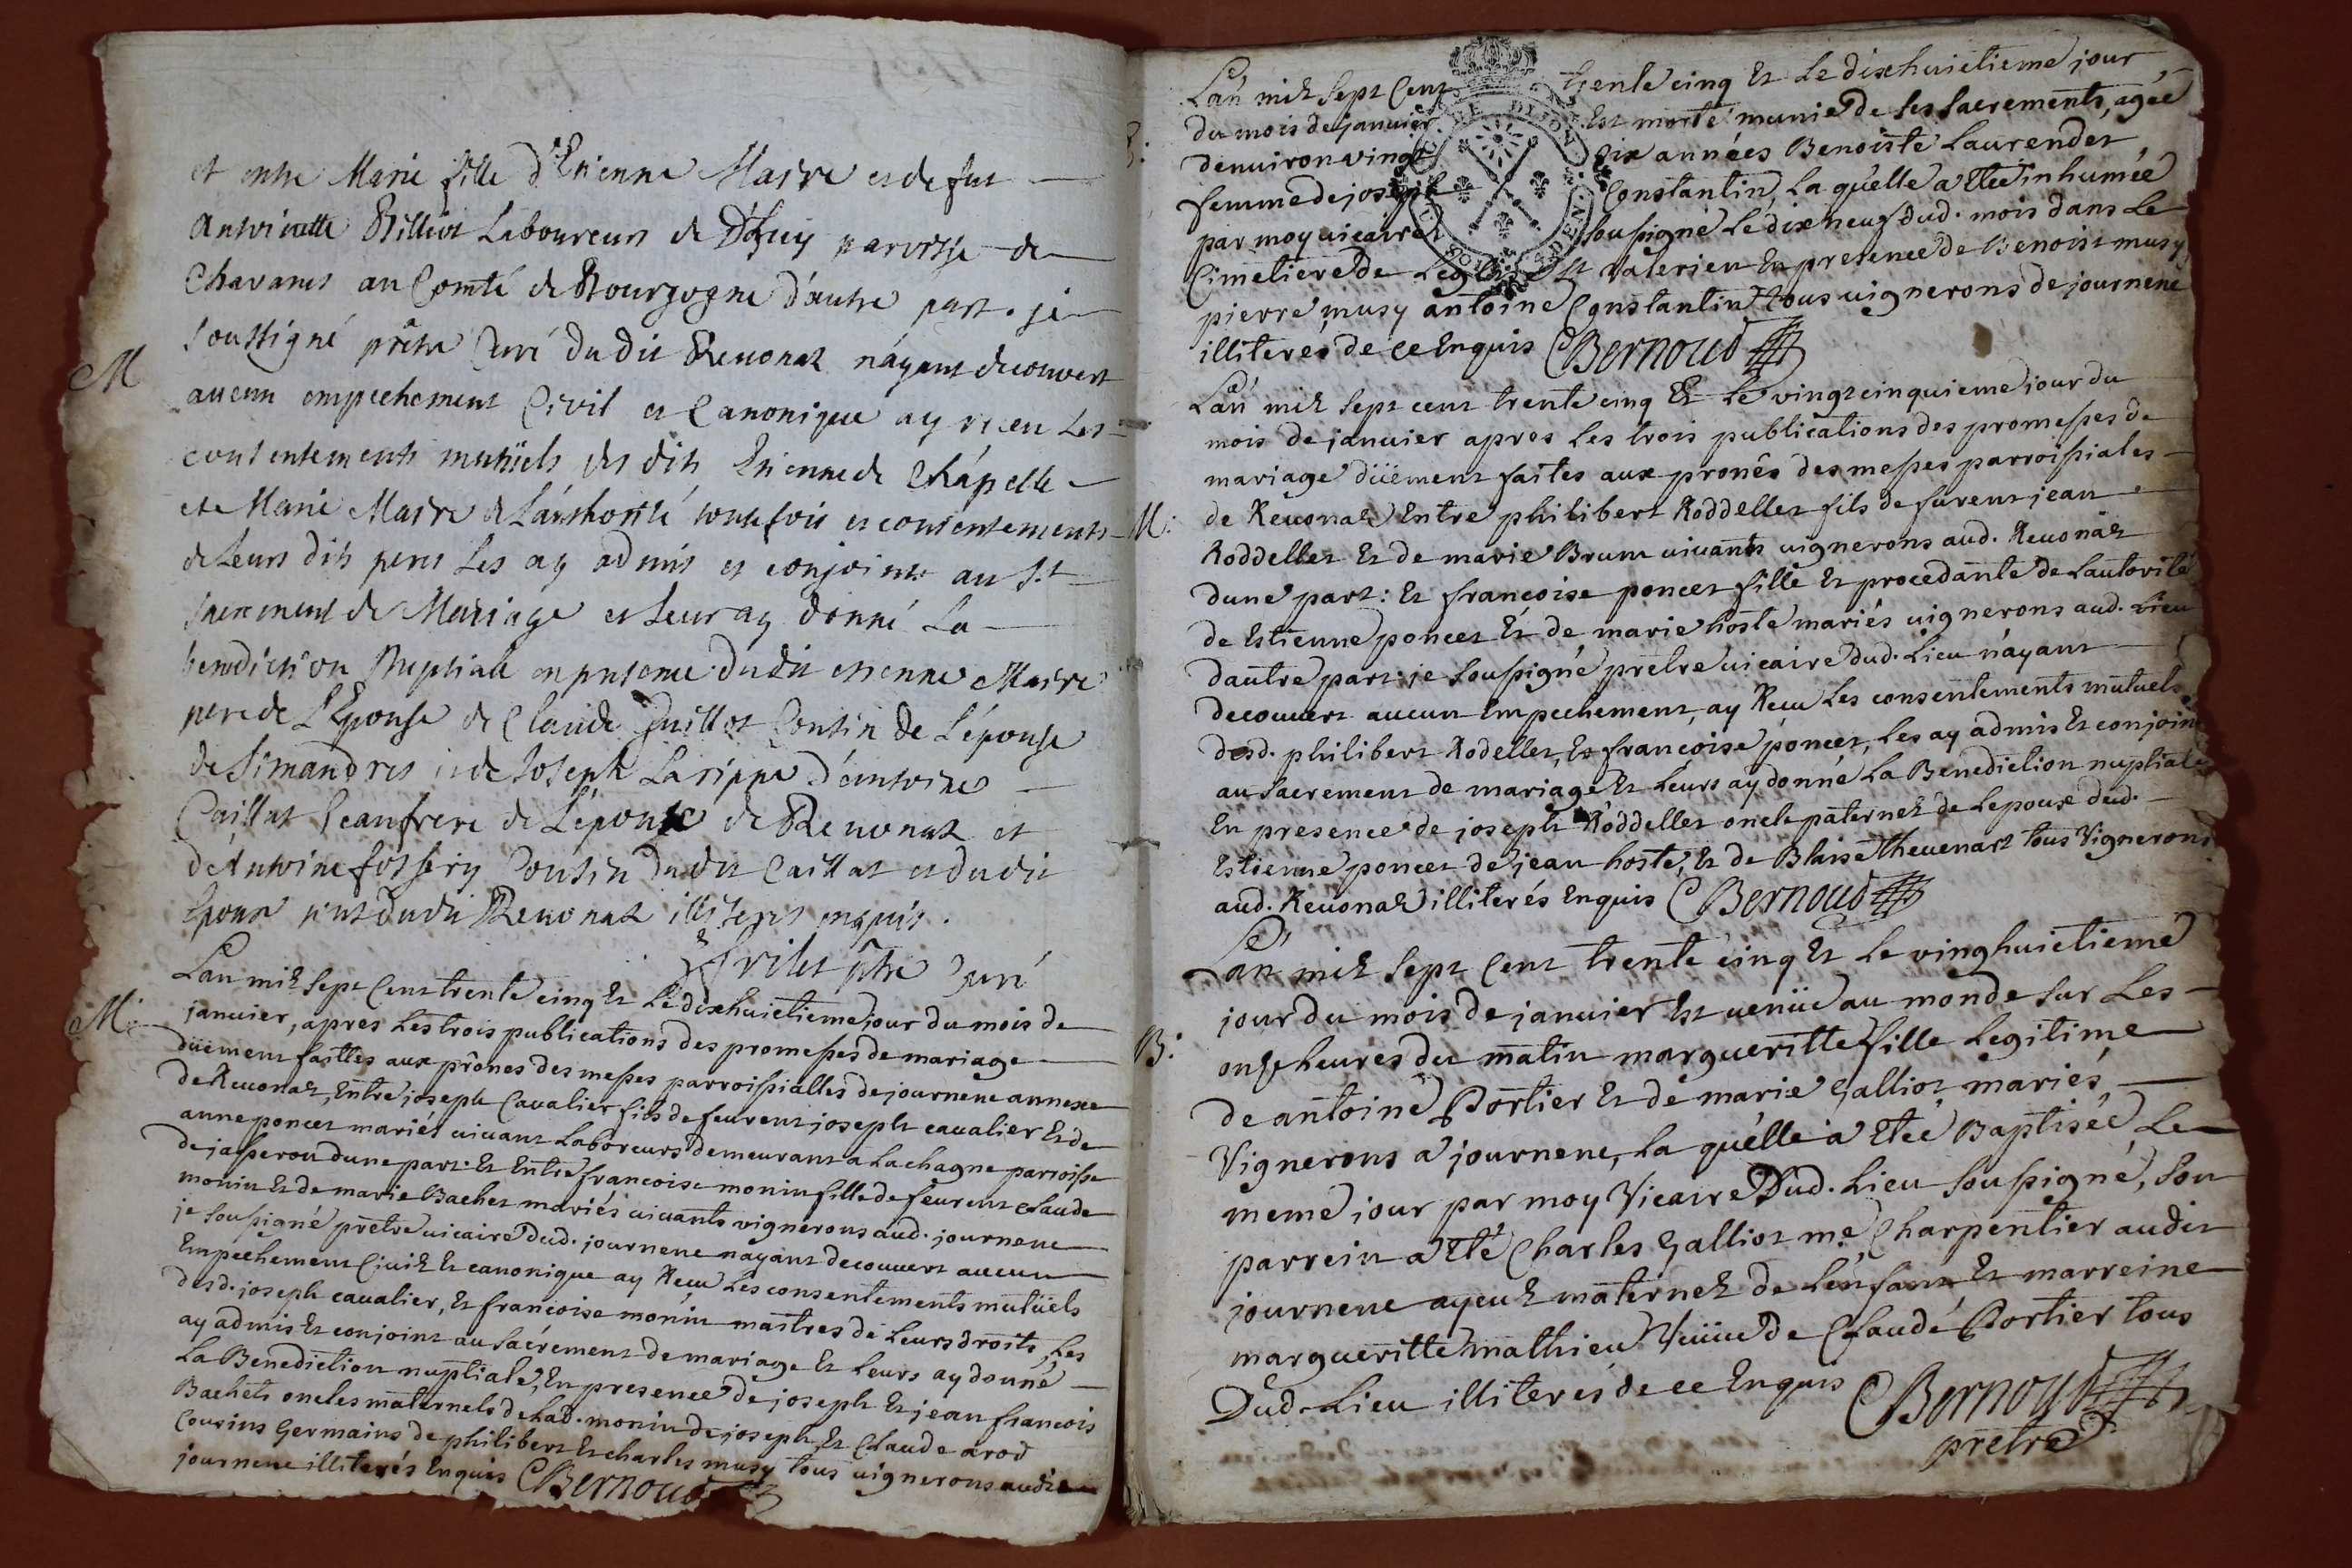 et entre Marie fille d'Etienne Maire et de fut
Antoinette Billiot Laboureurs de D'huy parroisse de
Chavanes au Comté de Bourgogne d'autre part. je
soussigné prêtre Curé du dit Revonaz n'ayant decouvert
M
aucun empechement Civil et Canonique ay reçeu Les
consentements mutüels des dits Etienne de Chapelle
et Marie Maire de L'authorité toutefois et consentements
de Leurs dits peres Les ay admis et conjoints au St
sacrement de Mariage et Leur ay donné La
benediction Nuptiale en presence du dit etienne Maire
pere de L'Epouse de Claude Guillot Cousin de L'épouse
de Simandres et de Joseph Larippe d'antoine
Caillat beaufrere de L'épouse de Revonaz et
d'Antoine fossery Cousin du dit Caillat et du dit
Epoux tous du dit Revonaz illiteres enquis.
frilet ptre Curé
Lan mil sept Cent trente cinq et Le dixhuictieme jour du mois de
M:
januier, apres Les trois publications des promesses de mariage
düement faittes aux prônes des messes parroissialles de journene annexe
de Reuonaz, Entre joseph Caualier fils de feurent joseph caualier et de
anne poncet mariés uiuant Laboreurs demeurant a La chagne parroisse
de jasseron dune part: Et Entre francoise monin fille de feurent claude
monin et de marie Bachet mariés uiuants vignerons aud. journene
je soussigné prêtre uicaire dud. journene nayant decouuert aucun
Empechement Ciuil et canonique ay Reçu Les consentements mutüels
desd. joseph caualier, et francoise monin maitres de Leurs droits, Les
ay admis et conjoint au sacrement de mariage et Leurs ay donné
La Benediction nuptiale, En presence de joseph et jean francois
Bachets oncles maternels de Lad. monin de joseph et Claude arod
Cousins Germains de philibert et charles musy tous uignerons audit
journene illiterés Enquis CBernoud
Lan mil sept Cent trente cinq et Le dixhuictieme jour
du mois de januier Est morte munie de ses sacrements, agée
denuiron vingt six années Benoiste Laurendet
femme de joseph Constantin, La quelle a Eteé inhumée
par moy uicaire soussigné Le dix neuf dud. mois dans Le
Cimetiere de Leglise St Valerien En presence de Benoist musy
pierre musy antoine Constantin tous uignerons de journene
illiterés de ce Enquis CBernoud
Lan mil sept cent trente cinq Et Le vingt cinquieme jour du
mois de januier apres Les trois publications des promesses de
mariage düement faites aux pronês des messes parroissiales
M:
de Reuonaz Entre philibert Roddellet fils de furent jean
Roddellet Et de marie Brunt uiuants uignerons aud. Reuonaz
dune part: Et francoise poncet fille Et procedante de Lautorité
de Estienne poncet Et de marie hoste mariés uignerons aud. Lieu
dautre part: je soussigné prêtre uicaire dud. Lieu nayant
decouuert aucun Empechement, ay Reçu Les consentements mutuels
desd. philibert Rodellet, Et francoise poncet, Les ay admis Et conjoint
au sacrement de mariage Et Leurs ay donné La Benediction nuptiale
En presence de joseph Roddellet oncle paternel de Lepoux dud.
Estienne poncet de jean hoste, Et de Blaise Theuenart tous Vignerons
aud. Reuonaz illiterés Enquis CBernoud
Lan mil sept Cent trente cinq Et Le vinghuictieme
jour du mois de januier Est uenüe au monde sur Les
B:
onze heures du matin margueritte fille Legitime
de antoine Portier Et de marie Galliot mariés
Vignerons a journene, La quelle a Eteé Baptisée Le
meme jour par moy Vicaire Dud. Lieu soussigné, son
parrein a Eté Charles Galliot me Charpentier audit
journene ayeul maternel de Lenfant, Et marreine
margueritte mathieu Veüue de Claude Portier tous
Dud. Lieu illiterés de ce Enquis CBernoud
prêtre